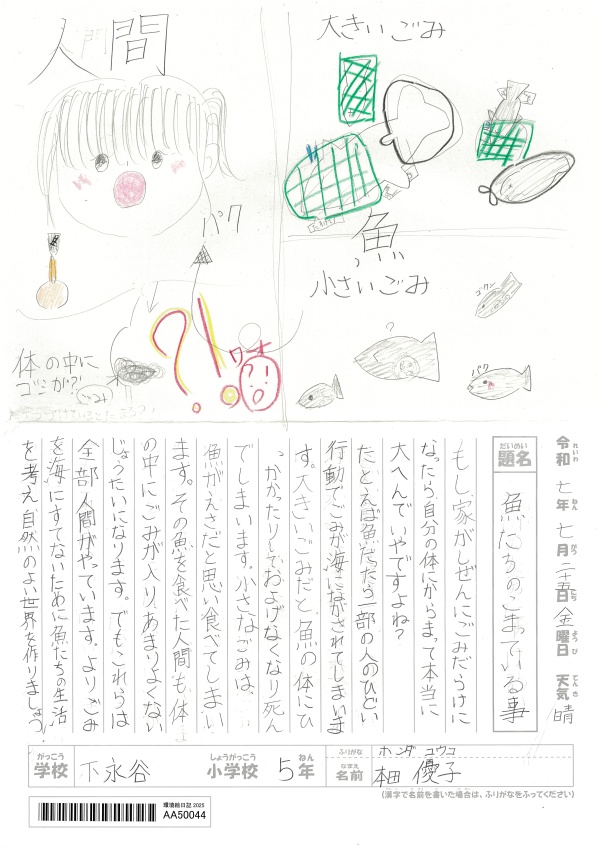 人間
大きいごみ
パク
魚
小さいごみ
ゴックン
?
パク
体の中に
ゴミが?!
ごみ
?!
ワーオ
?!
令和七年七月二十五日金曜日 天気 晴
れいわ ねん がつ にち ようび てんき
だいめい
題名 魚たちのこまっている事
もし、家がしぜんにごみだらけに
なったら、自分の体にからまって本当に
大へんでいやですよね?
たとえば魚だったら一部の人のひどい
行動でごみが海にながされてしまいま
す。大きいごみだと、魚の体にひ
っかかったりしておよげなくなり死ん
でしまいます。小さなごみは、
魚がえさだと思い食べてしまい
ます。その魚を食べた人間も、体
の中にごみが入りあまりよくない
じょうたいになります。でもこれらは
全部人間がやっています。よりごみ
を海にすてないために魚たちの生活
を考え、自然のよい世界を作りましょう!
がっこう しょうがっこう ねん ふりがな ホンダ ユウコ
学校 下永谷 小学校 5年 なまえ 名前 本田 優子
(漢字で名前を書いた場合は、ふりがなをふってください)
環境絵日記 2025
AA50044